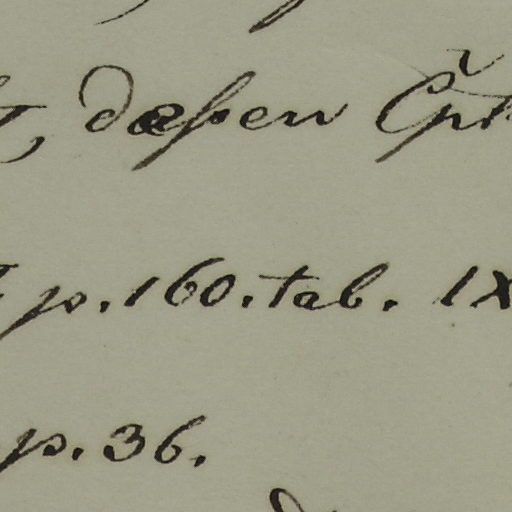 dæßen
p. 160. tab. IX
p. 36.